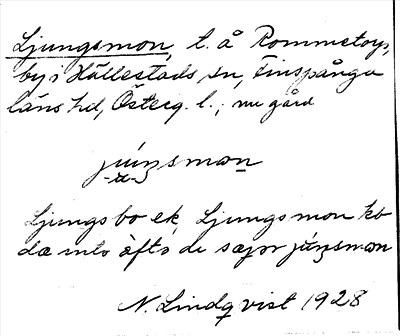 Ljungsmon, t. å Rommetorp,
by i Hällestads sn, Finspånga
läns hd, Österg. l.; nu gård
júŋsmon
Ljungsbo ek, Ljungsmon kb
dæ òftə di sæjər júŋsmon
N. Lindqvist 1928